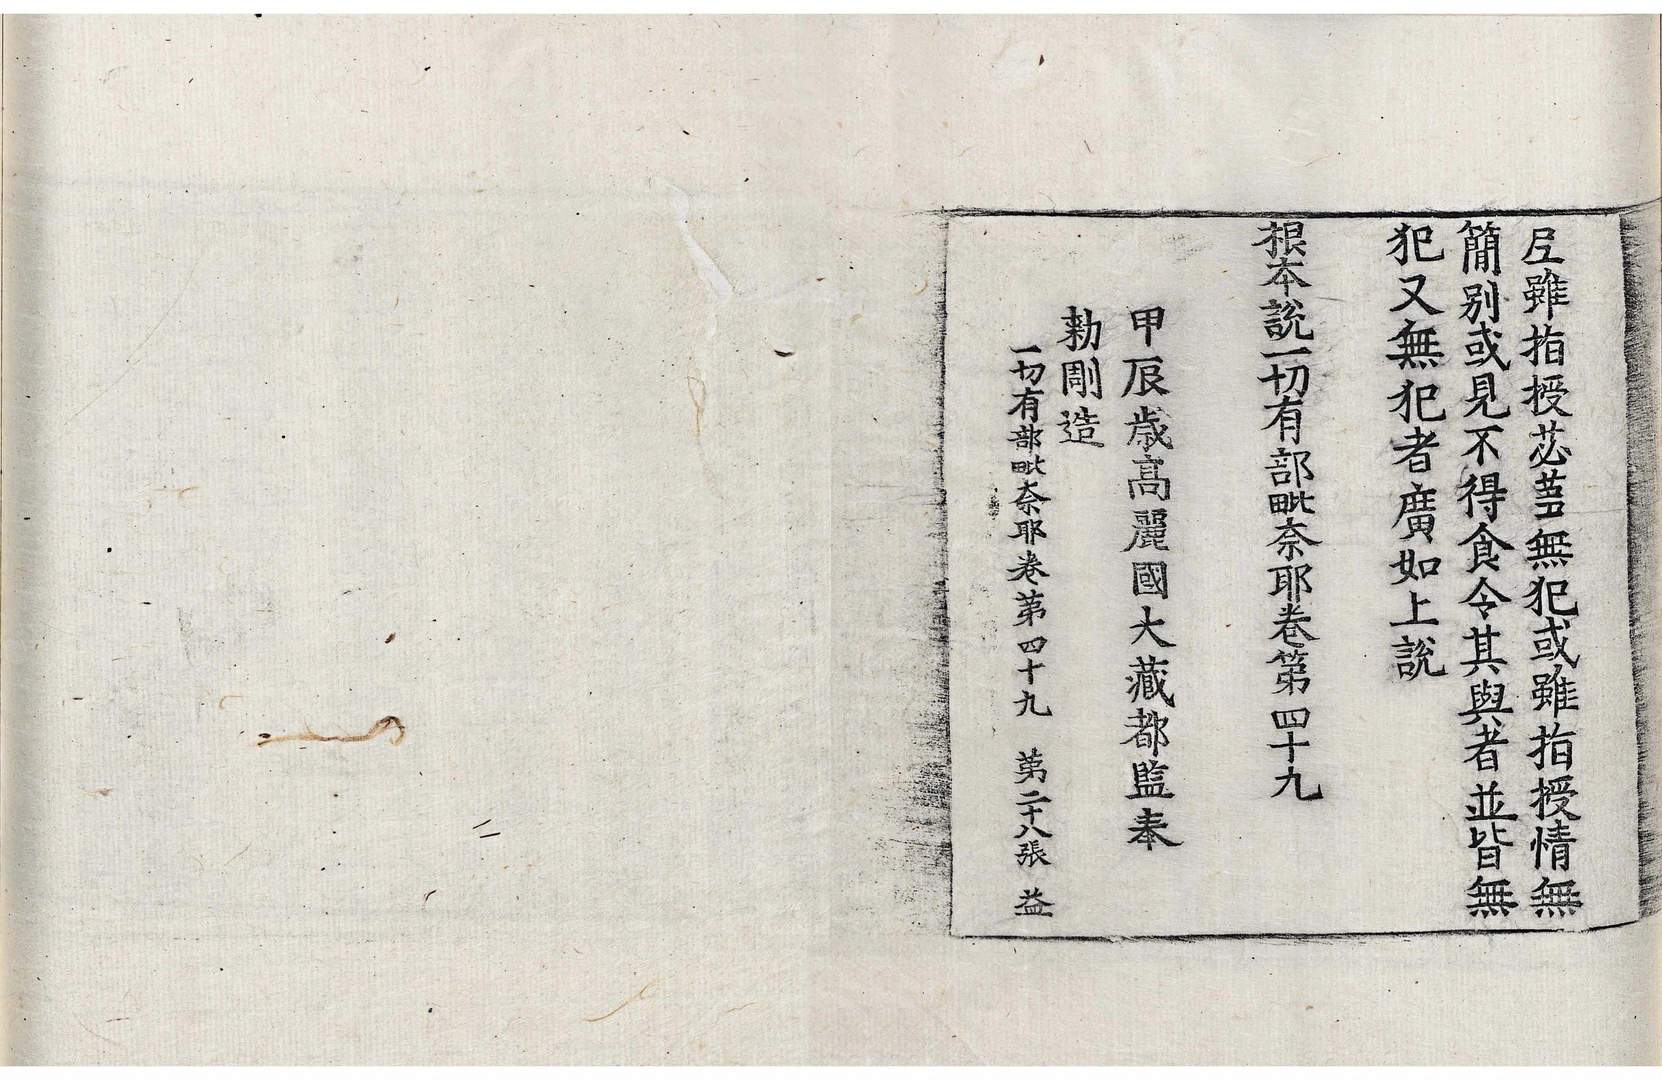 尼雖指授苾芻無犯或雖指授情無
簡別或見不得食令其與者並皆無
犯又無犯者廣如上說
根本說一切有部毗奈耶卷第四十九
甲辰歲高麗國大藏都監奉
勅剛造
一切有部毗奈耶卷第四十九 第二十八張 益